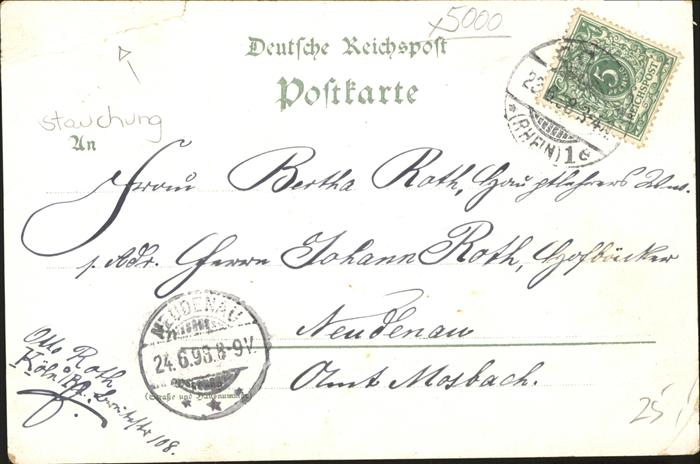 x5000
Deutsche Reichspost
Postkarte
stauchung
An
Frau Bertha Roth, Hauptlehrers Wwe.
p. Adr. Herrn Johann Roth, Hofbäcker
Neudenau
Amt Mosbach.
(Straße und Hausnummer)
5
REICHSPOST
(RHEIN) 1d
NEUDENAU
24.6.98.8-9V.
Otto Roth
Köln
108.
25